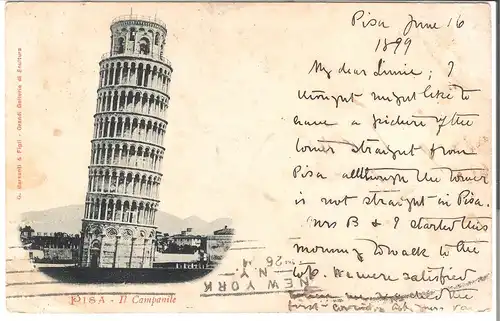 Pisa June 16
1899
My dear Linnie; I
thought might like to
have a picture of the
tower straight from
Pisa although the tower
is not straight in Pisa.
Mrs B & I started this
morning to walk to the
top. We were satisfied
when we reached the
first
PISA - Il Campanile
NEW YORK
N.Y.
26
G. Barsanti & Figli - Grandi Gallerie di Scultura